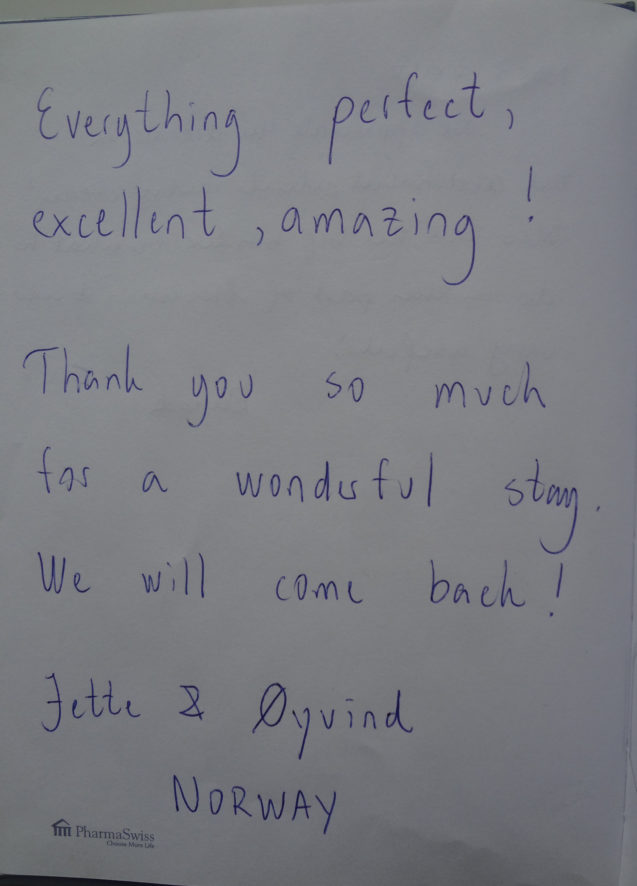 Everything perfect,
excellent, amazing!
Thank you so much
for a wonderful stay.
We will come back!
Jette & Øyvind
NORWAY
PharmaSwiss
Choose More Life